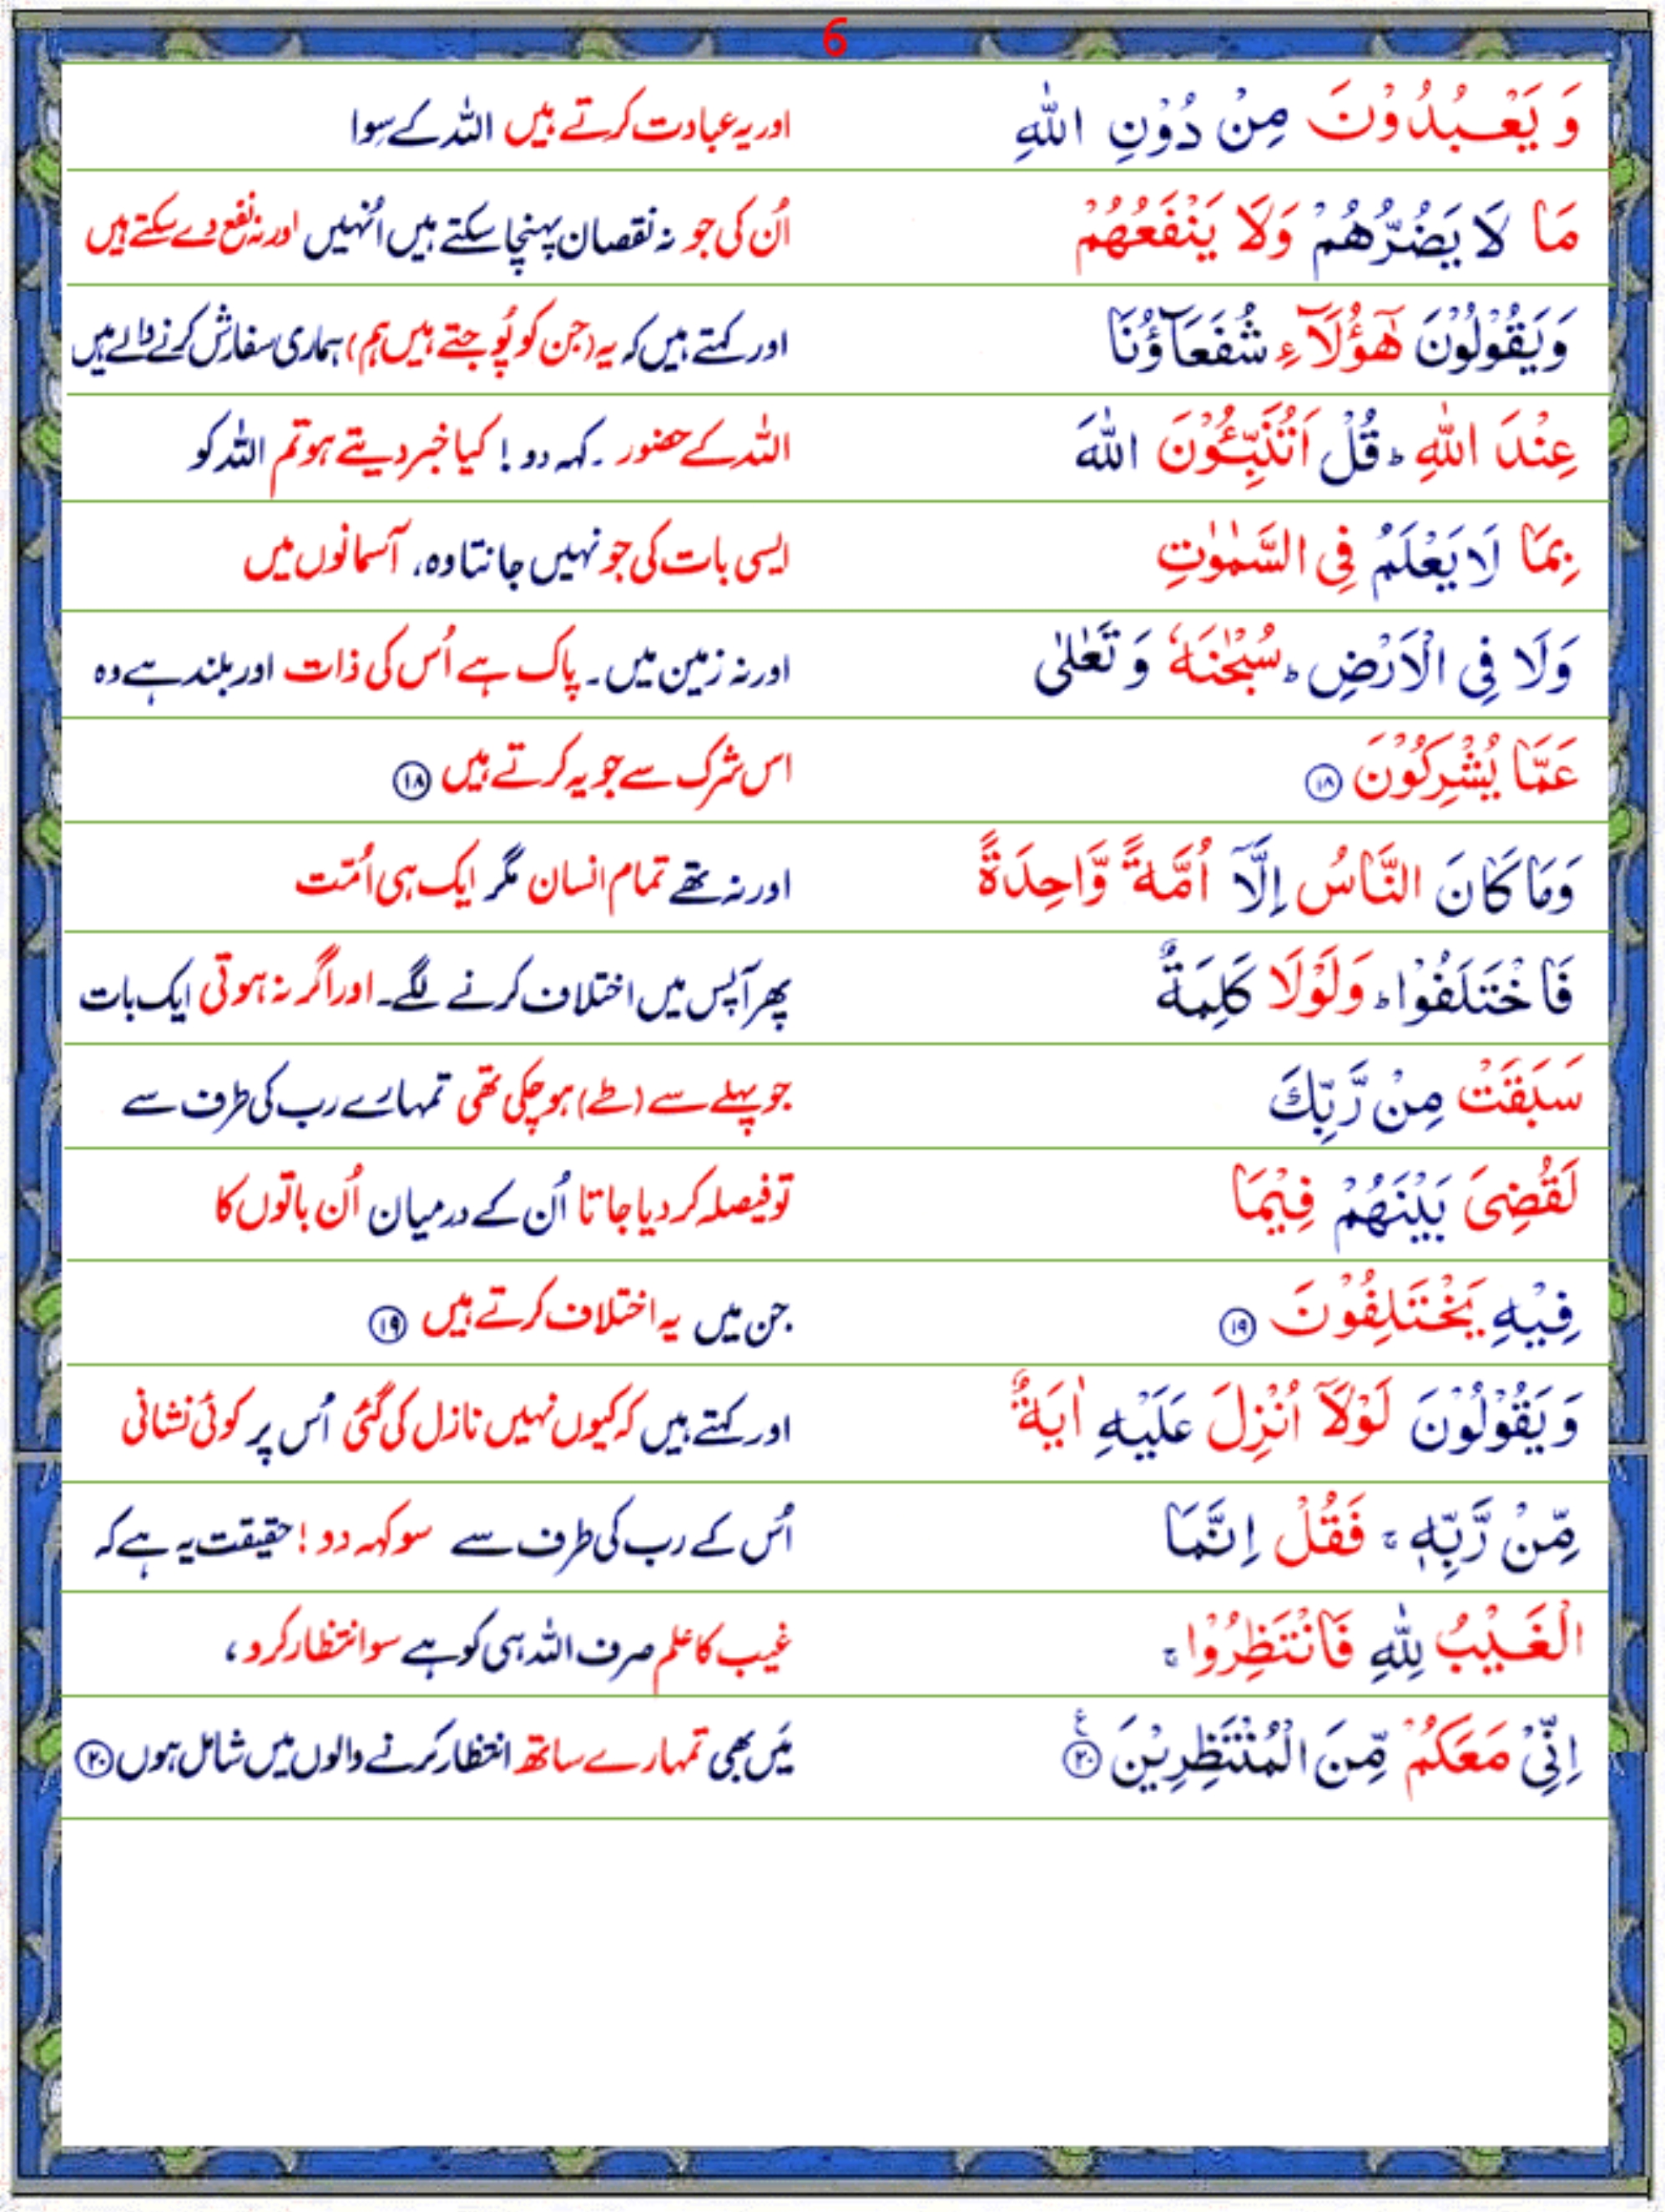 6
وَ يَعْبُدُوْنَ مِنْ دُوْنِ اللّٰهِ اور یہ عبادت کرتے ہیں اللہ کے سِوا
مَا لَا يَضُرُّهُمْ وَلَا يَنْفَعُهُمْ اُن کی جو نہ نقصان پہنچا سکتے ہیں اُنہیں اور نہ نفع دے سکتے ہیں
وَيَقُوْلُوْنَ هٰٓؤُلَآءِ شُفَعَآؤُنَا اور کہتے ہیں کہ یہ (جن کو پُوجتے ہیں ہم) ہماری سفارش کرنے والے ہیں
عِنْدَ اللّٰهِ ؕ قُلْ اَتُنَبِّـُٔوْنَ اللّٰهَ اللہ کے حضور ۔ کہہ دو ! کیا خبر دیتے ہو تم اللہ کو
بِمَا لَا يَعْلَمُ فِى السَّمٰوٰتِ ایسی بات کی جو نہیں جانتا وہ، آسمانوں میں
وَلَا فِى الْاَرْضِ ؕ سُبْحٰنَهٗ وَ تَعٰلٰى اور نہ زمین میں۔ پاک ہے اُس کی ذات اور بلند ہے وہ
عَمَّا يُشْرِكُوْنَ ۱۸ اس شرک سے جو یہ کرتے ہیں ۱۸
وَمَا كَانَ النَّاسُ اِلَّاۤ اُمَّةً وَّاحِدَةً اور نہ تھے تمام انسان مگر ایک ہی اُمّت
فَاخْتَلَفُوْا ؕ وَلَوْلَا كَلِمَةٌ پھر آپس میں اختلاف کرنے لگے۔ اور اگر نہ ہوتی ایک بات
سَبَقَتْ مِنْ رَّبِّكَ جو پہلے سے (طے) ہو چکی تھی تمہارے رب کی طرف سے
لَقُضِىَ بَيْنَهُمْ فِيْمَا تو فیصلہ کر دیا جاتا اُن کے درمیان اُن باتوں کا
فِيْهِ يَخْتَلِفُوْنَ ۱۹ جن میں یہ اختلاف کرتے ہیں ۱۹
وَيَقُوْلُوْنَ لَوْلَاۤ اُنْزِلَ عَلَيْهِ اٰيَةٌ اور کہتے ہیں کہ کیوں نہیں نازل کی گئی اُس پر کوئی نشانی
مِّنْ رَّبِّهٖ ۚ فَقُلْ اِنَّمَا اُس کے رب کی طرف سے سو کہہ دو ! حقیقت یہ ہے کہ
الْغَيْبُ لِلّٰهِ فَانْتَظِرُوْا ۚ غیب کا علم صرف اللہ ہی کو ہے سو انتظار کرو ،
اِنِّىْ مَعَكُمْ مِّنَ الْمُنْتَظِرِيْنَ ۲۰ ع میں بھی تمہارے ساتھ انتظار کرنے والوں میں شامل ہوں ۲۰